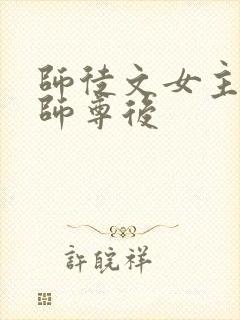 師徒文女主
師尊後
許皖祥